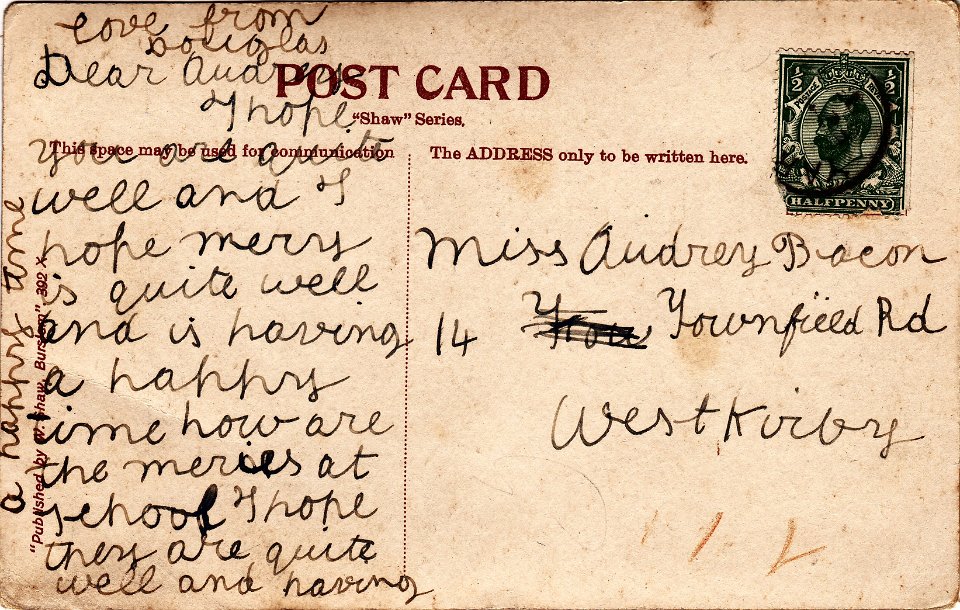 love from
Douglas
Dear Audrey
I hope
you are quite
well and I
hope merry
is quite well
and is having
a happy
time how are
the meries at
school I hope
they are quite
well and having
a happy time
POST CARD
"Shaw" Series.
This space may be used for communication
The ADDRESS only to be written here.
"Published by W. Shaw, Burslem". 392 X
½ ½
POSTAGE
HALFPENNY
Miss Audrey Bacon
14 Townfield Rd
West Kirby